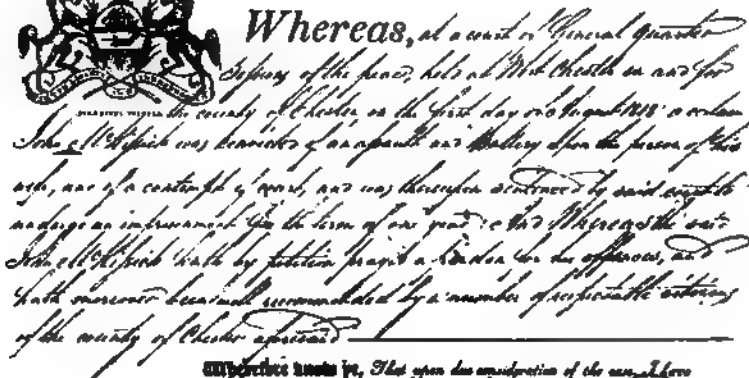 Whereas, at a court of General Quarter
Sessions of the peace, held at West Chester in and for
the county of Chester on the first day of August 1818 a certain
John McKissick was convicted of an assault and Battery upon the person of his
wife, and of a contempt of court, and was thereupon sentenced by said court to
undergo an imprisonment for the term of one year: And Whereas the said
John McKissick hath by petition prayed a Pardon for his offences, and
hath moreover been recommended by a number of respectable citizens
of the county of Chester aforesaid
Wherefore know ye, That upon due consideration of the case, I have